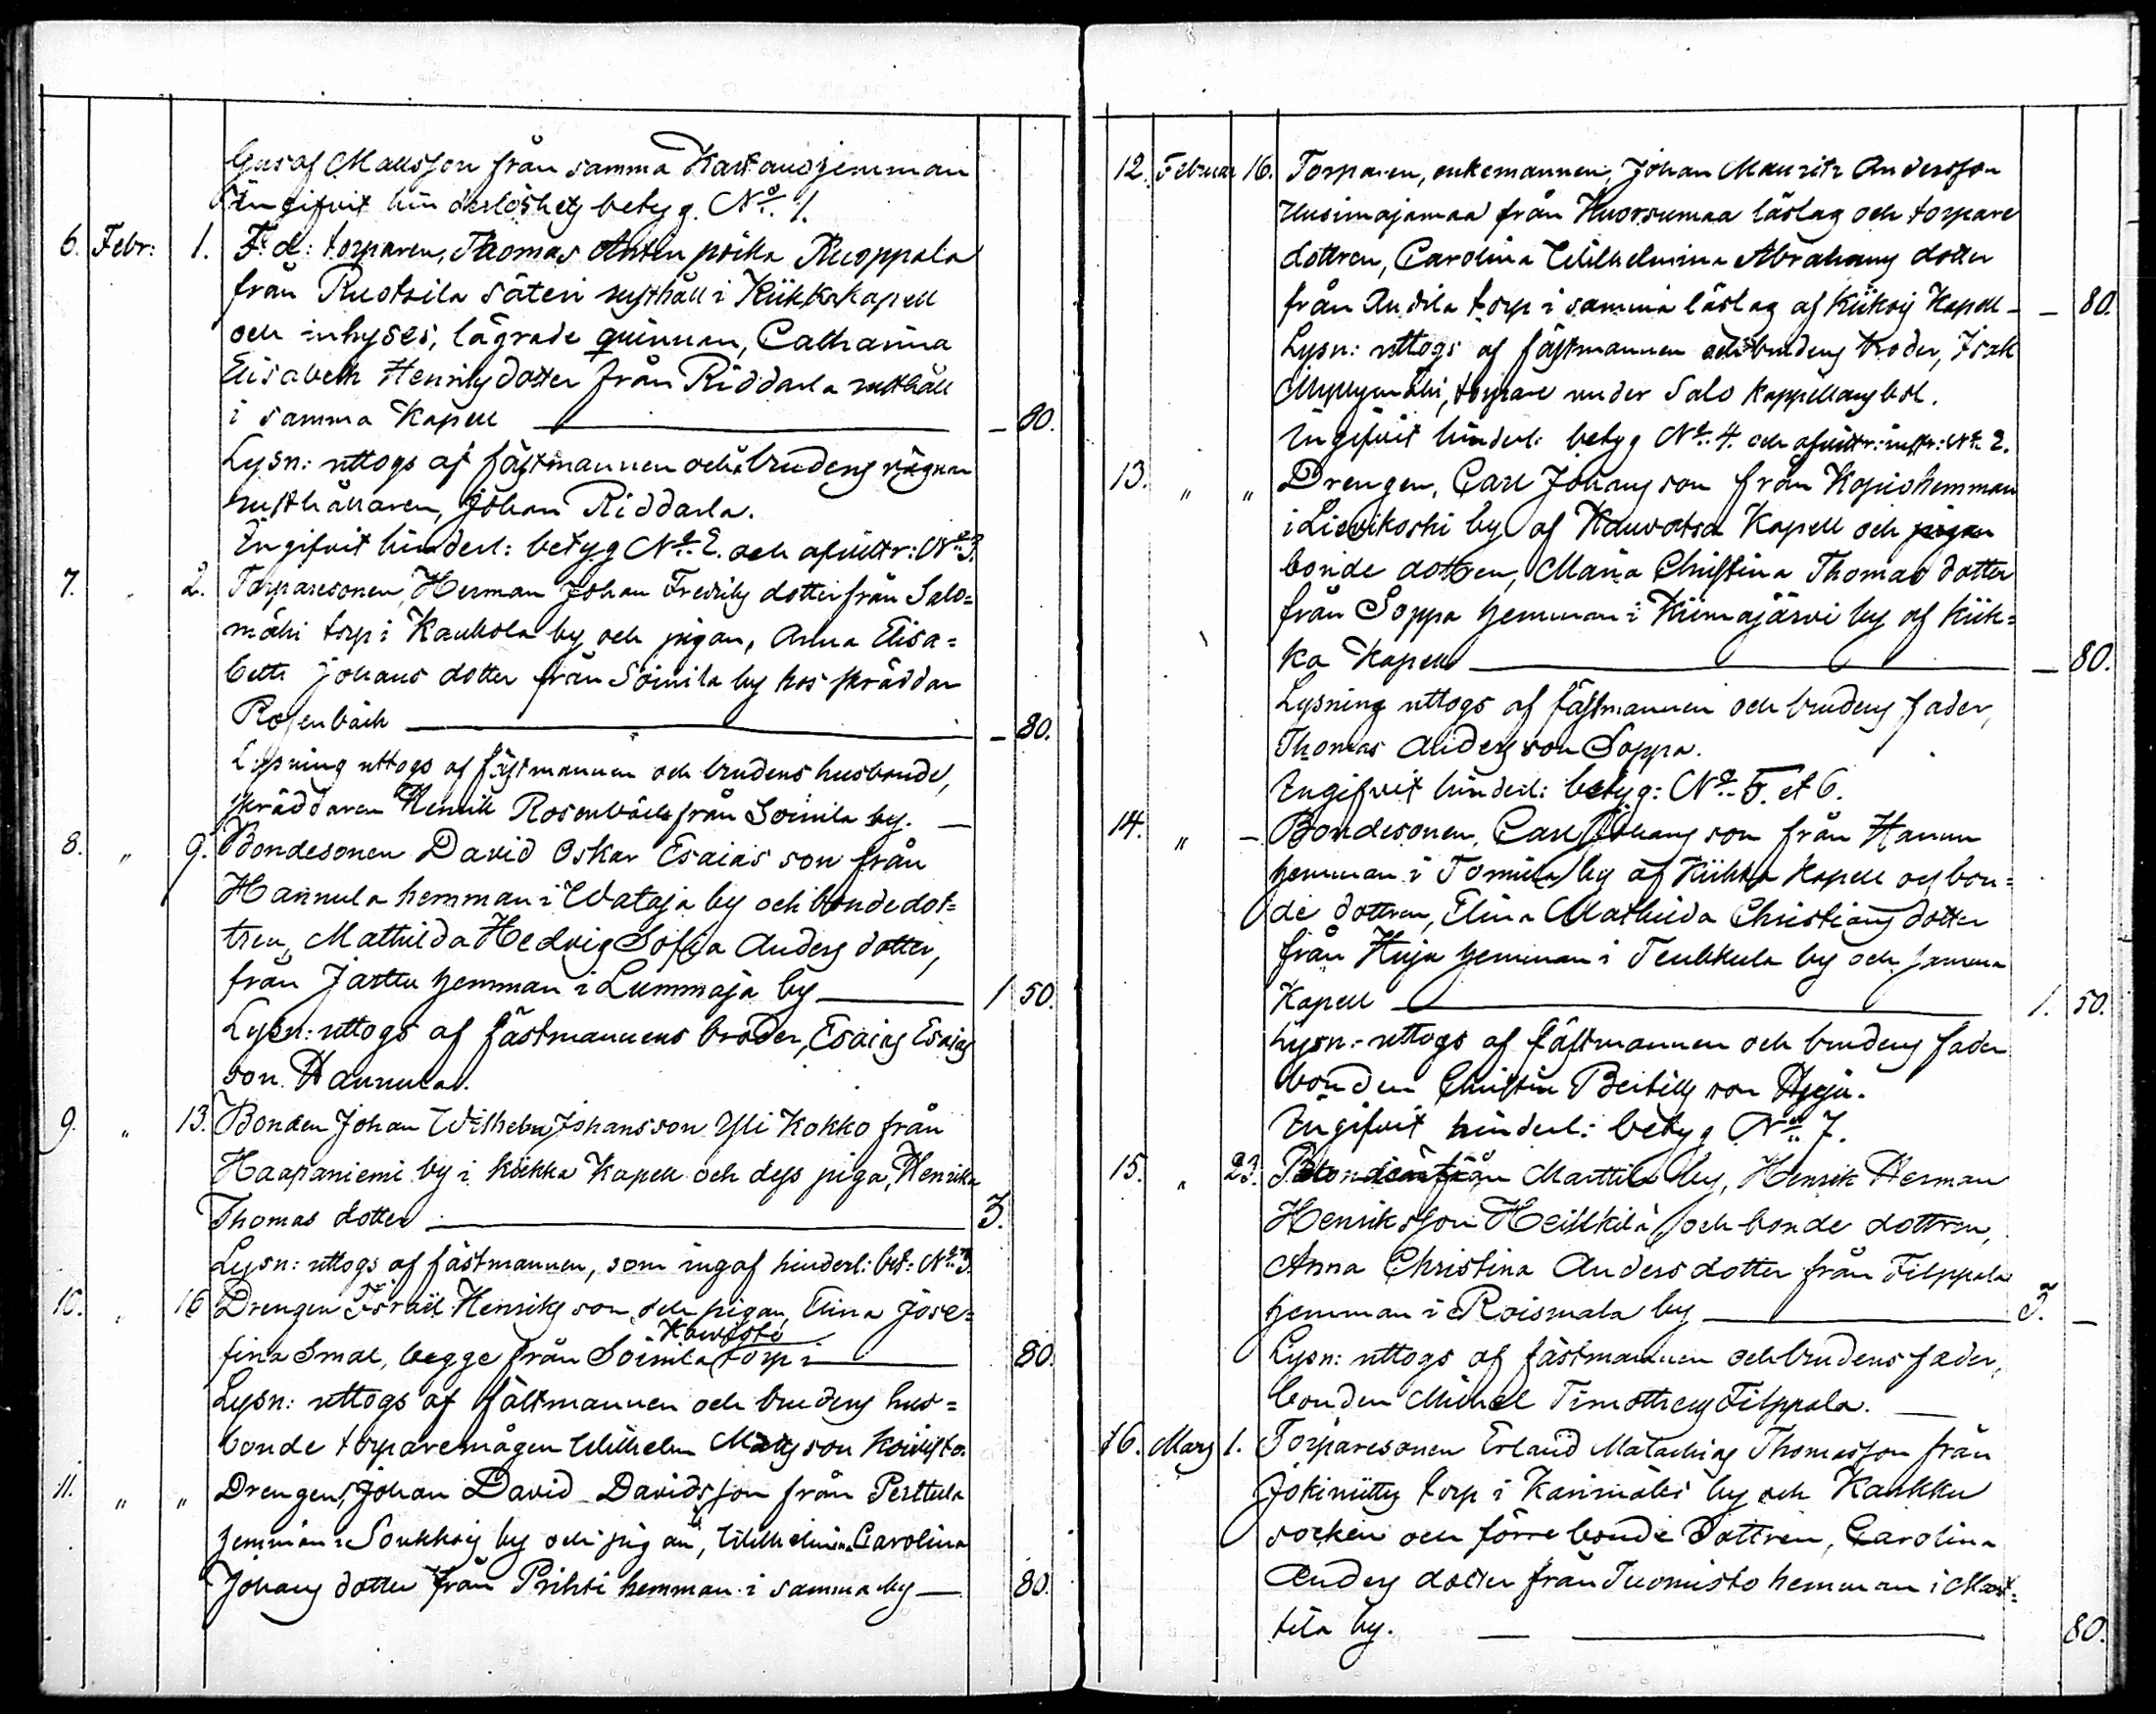 Gustaf Matsson från samma Kartano hemman
Ingifvit hinderlöshets betyg. No. 1.
6. Febr: 1. F. d: torparen, Thomas Anten poika Ruoppala
från Ruotsila säteri rusthåll i Kiikka kapell
och inhyses, lägrade quinnan, Catharina
Elisabeth Henriks dotter från Riddarla rusthåll
i samma Kapell — 80.
Lysn: uttogs af fästmannen och brudens
rusthållaren, Johan Riddarla.
Ingifvit hinderl: betyg No. 2. och afvittr: No. 3.
7. " 2. Torparesonen, Herman Johan Fredriks dotter från Salo=
mäki torp i Kaukola by och pigan, Anna Elisa=
beth Johans dotter från Soinila by hos skräddar
Rosenbäck — 80.
Lysning uttogs af fästmannen och brudens husbonde,
skräddaren Henrik Rosenbäck från Soinila by. —
8. " 9. Bondesonen David Oskar Esaias son från
Hannula hemman i Wataja by och bondedot=
tren, Mathilda Hedvig Sofia Anders dotter,
från Jattu hemman i Lummaja by — 1 50.
Lysn: uttogs af fästmannens broder, Esaias Esaias
son Hannula.
9. " 13. Bonden Johan Wilhelm Johansson Yli Kokko från
Haapaniemi by i Kiikka Kapell och dess piga, Henrika
Thomas dotter — 3.
Lysn: uttogs af fästmannen, som ingaf hinderl: bet: No. 3.
10. " 16 Drengen Israël Henriks son och pigan, Elina Jose=
Koivisto
fina Smal, begge från Soinila torp i — 80.
Lysn: uttogs af fästmannen och brudens hus=
bonde torparemågen Wilhelm Matts son Koivisto.
11. " " Drengen, Johan David Davidsson från Perttula
hemman i Soukko by och pigan, Wilhelmina Carolina
Johans dotter från Prihti hemman i samma by — 80.
12. Februar 16. Torparen, enkemannen, Johan Mauritz Andersson
Uusimajamaa från Kuorsumaa läslag och torpare
dottren, Carolina Wilhelmina Abrahams dotter
från Anttila torp i samma läslag af Kiikois Kapell — 80.
Lysn: uttogs af fästmannen och brudens broder, Isak
Myllymäki, torpare under Salo kappellans bol.
Ingifvit hinderl: betyg No. 4. och afvittr: instr: No. 2.
13. " " Drengen, Carl Johans son från Kopio hemman
i Lievikoski by af Kauvatsa Kapell och pigan
bonde dottren, Maria Christina Thomas dotter
från Soppa hemman i Kiimajärvi by af Kiik=
ka Kapell — 80.
Lysning uttogs af fästmannen och brudens fader,
Thomas Anders son Soppa.
Ingifvit hinderl: betyg: No. 5. et 6.
14. " — Bondesonen, Carl Johans son från Hannu
hemman i Tomula by af Kiikka Kapell och bon=
de dottren, Elina Mathilda Christians dotter
från Huja hemman i Teukkula by och samma
Kapell — 1. 50.
Lysn: uttogs af fästmannen och brudens fader
bonden Christian Bertills son Huja.
Ingifvit hinderl: betyg No. 7.
15. " 23. Bonden från Marttila by, Henrik Herman
Henriksson Heikkilä, och bonde dottren,
Anna Christina Anders dotter från Filppula
hemman i Roismala by — 3. —
Lysn: uttogs af fästmannen och brudens fader,
bonden Michel Timotheus Filppula. —
16. Mars 1. Torparesonen Erland Malachias Thomasson från
Jokiniitty torp i Karimäki by och Kankku
socken och förre bonde dottren, Carolina
Anders dotter från Tuomisto hemman i Mart=
tila by. — 80.